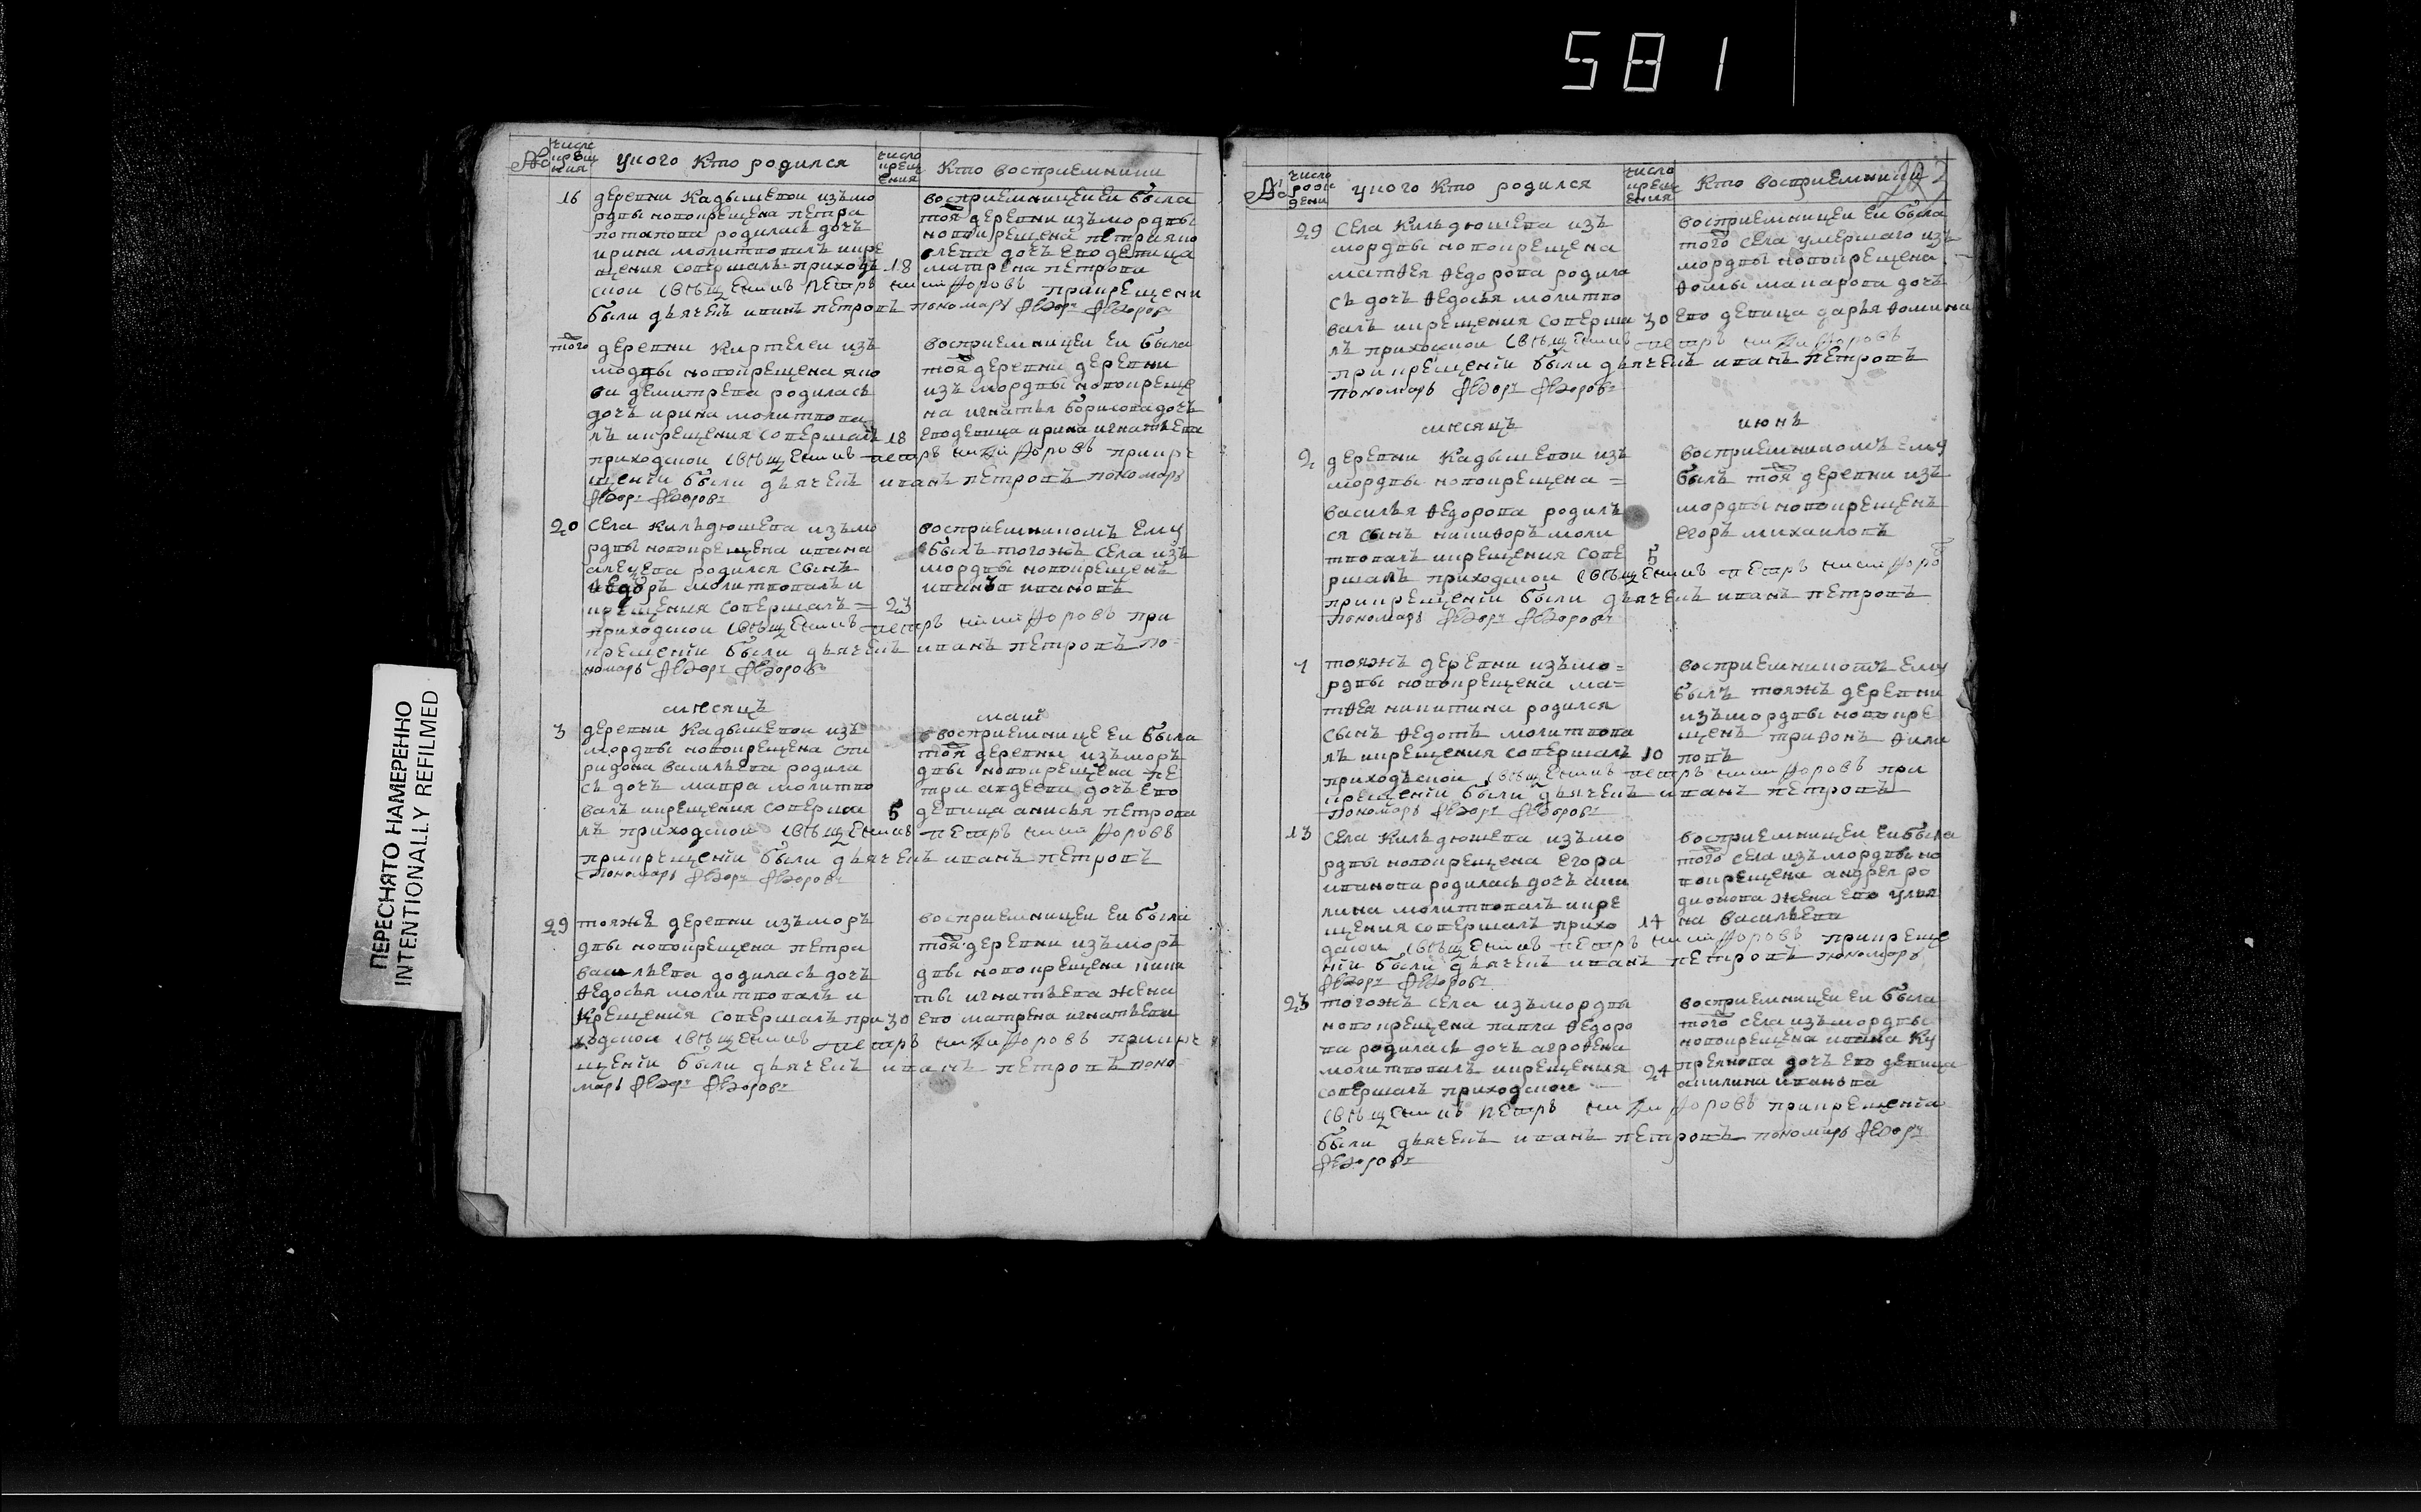 581
ПЕРЕСНЯТО НАМЕРЕННО
INTENTIONALLY REFILMED
№
число
крещ
ения
у кого кто родился
число
крещ
ения
кто восприемники
16
деревни Кадышевои изъ мо
рдвы новокрещена петра
потапова родилась дочь
ирина молитвовалъ и кре
щения совершалъ приходъ 18
скои священникъ петръ никифоровъ при крещени
были дьячекъ иванъ петровъ пономарь Ѳедоръ Ѳедоровъ
восприемницеи еи была
тоя деревни изъ мордвы
новокрещена петра яко
влева дочь ево девица
матрена петрова
того
деревни Киртелеи изъ
мордвы новокрещена яко
ва демитрева родилась
дочь ирина молитвова
лъ и крещения совершалъ 18
приходскои священникъ петръ никифоровъ при кре
щении были дьячекъ иванъ петровъ пономарь
Ѳедоръ Ѳедоровъ
восприемницеи еи была
тоя деревни деревни
изъ мордвы новокреще
на игнатья борисова дочь
ево девица ирина игнатьева
20
села Кильдюшева изъ мо
рдвы новокрещена ивана
родился сынъ
ѳедоръ молитвовалъ и
крещения совершалъ = 23
приходскои священникъ петръ никифоровъ при
крещении были дьячекъ иванъ петровъ по=
номарь Ѳедоръ Ѳедоровъ
восприемникомъ ему
былъ тогожъ села изъ
мордвы новокрещенъ
иванъ ивановъ
месяцъ
маи
3
деревни Кадышевои изъ
мордвы новокрещена спи
ридона васильева родила
сь дочь мавра молитво
валъ и крещения соверша 5
лъ приходскои священникъ петръ никифоровъ
при крещении были дьячекъ иванъ петровъ
пономарь Ѳедоръ Ѳедоровъ
восприемнице еи была
тоя деревни изъ моръ
двы новокрещена пе
тра авдеева дочь ево
девица анисья петрова
29
тояжъ деревни изъ моръ
двы новокрещена петра
васильева додилась дочь
ѳедосья молитвовалъ и
Крещения совершалъ при 30
ходскои священникъ петръ никифоровъ при кре
щении были дьячекъ иванъ петровъ поно
марь Ѳедоръ Ѳедоровъ
восприемницеи еи была
тоя деревни изъ моръ
двы новокрещена ники
ты игнатьева жена
ево матрена игнатьева
№
число
рож
дени
у кого кто родился
число
крещ
ения
кто восприемники
29
села Кильдюшева изъ
мордвы новокрещена
матѳея ѳедорова родила
сь дочь ѳедосья молитво
валъ и крещения соверша 30
лъ приходскои священникъ петръ никифоровъ
при крещении были дьячекъ иванъ петровъ
пономарь Ѳедоръ Ѳедоровъ
восприемницеи еи была
того села умершаго изъ
мордвы новокрещена
ѳомы макарова дочь
ево девица дарья ѳомина
месяцъ
июнь
2
деревни Кадышевои изъ
мордвы новокрещена =
василья ѳедорова родилъ
ся сынъ никиѳоръ моли
твовалъ и крещения сове 5
ршалъ приходскои священникъ петръ никифоро
при крещении были дьячекъ иванъ петровъ
пономарь Ѳедоръ Ѳедоровъ
восприемникомъ ему
былъ тоя деревни изъ
мордвы новокрещенъ
егоръ михаиловъ
7
тояжъ деревни изъ мо=
рдвы новокрещена ма=
тѳея никитина родился
сынъ ѳедотъ молитвова
лъ и крещения совершалъ 10
приходьскои священникъ петръ никифоровъ при
крещении были дьячекъ иванъ петровъ
пономарь Ѳедоръ Ѳедоровъ
восприемникомъ ему
былъ тояжъ деревни
изъ мордвы новокре
щенъ триѳонъ ѳили
повъ
13
села Кильдюшева изъ мо
рдвы новокрещена егора
иванова родилась дочь аки
лина молитвовалъ и кре
щения совершалъ прихо 14
дскои священникъ петръ никифоровъ при креще
нии были дьячекъ иванъ петровъ пономарь
Ѳедоръ Ѳедоровъ
восприемницеи еи была
того села изъ мордвы но
вокрещена андрея ро
дионова жена ево улья
на васильева
23
тогожъ села изъ мордвы
новокрещена павла ѳедоро
ва родилась дочь агроѳена
молитвовалъ и крещения 24
совершалъ приходскои
священникъ петръ никифоровъ при крещении
были дьячекъ иванъ петровъ пономарь Ѳедоръ
Ѳедоровъ
восприемницеи еи была
того села изъ мордвы
новокрещена ивана ку
преянова дочь ево девица
акилина иванова